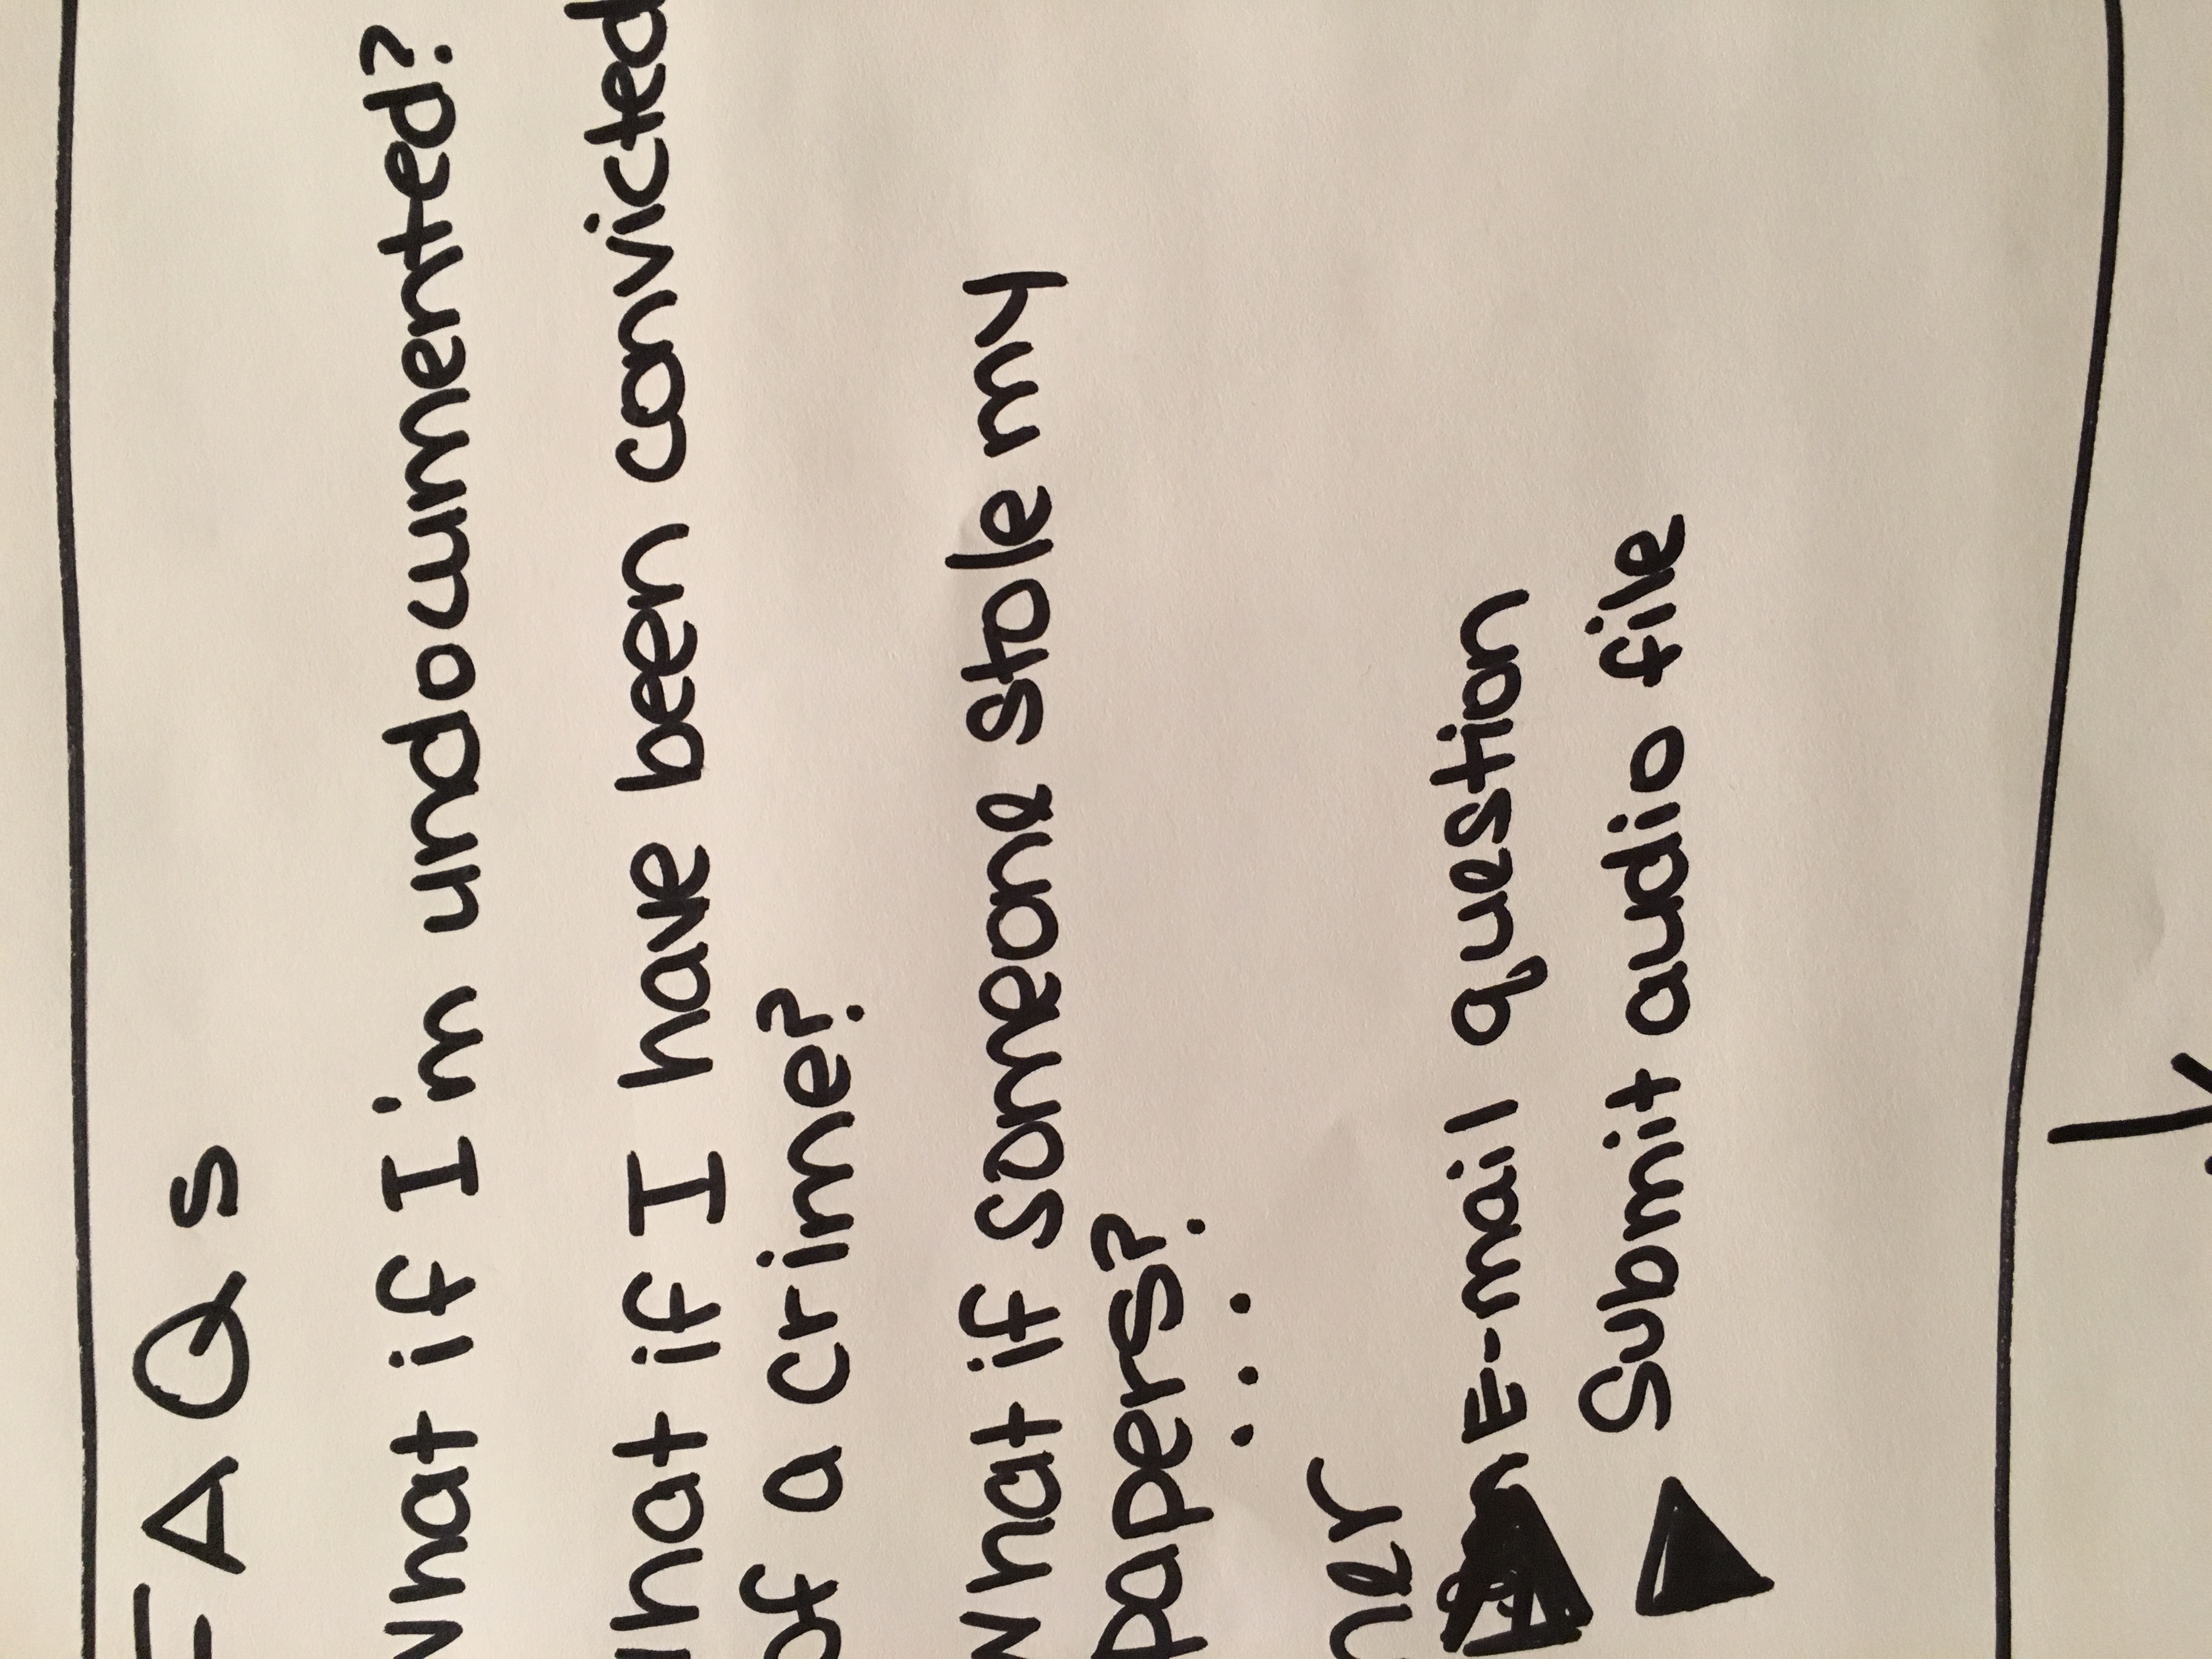 FAQs
What if I'm undocumented?
What if I have been convicted
of a crime?
What if someone stole my
papers?
...
E-mail question
Submit audio file